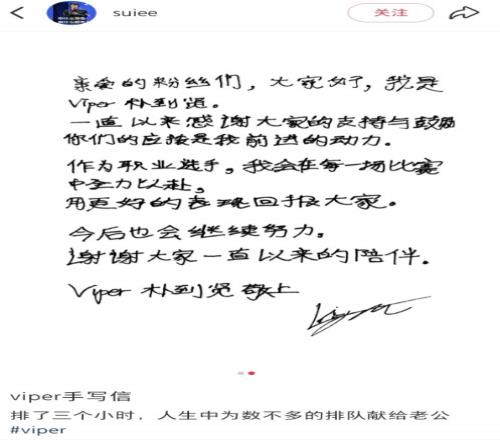 suiee
关注
亲爱的粉丝们，大家好，我是
Viper 朴到贤。
一直以来感谢大家的支持与鼓励
你们的应援是我前进的动力.
作为职业选手，我会在每一场比赛
中全力以赴，
用更好的表现回报大家。
今后也会继续努力。
谢谢大家一直以来的陪伴.
Viper 朴到贤 敬上
viper手写信
排了三个小时，人生中为数不多的排队献给老公
#viper